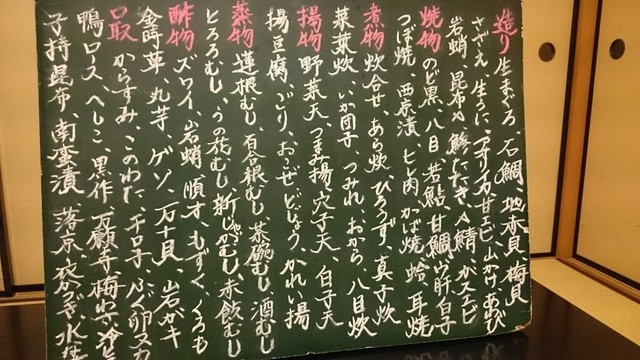 造り 生まぐろ、石鯛、地赤貝、梅貝
さざえ、生うに、アオリイカ、甘エビ、山かけ、あわび
岩蛸、昆布〆、鯵たたき、〆鯖、ガスエビ
焼物 のど黒、八目、若鮎、甘鯛、白子
つぼ焼、西京漬、ヒレ肉、かば焼、蛤、耳焼
煮物 炊合せ、あら炊、ひろうず、真子炊
菜葉炊、いか団子、つみれ、おから、八目炊
揚物 野菜天、つまみ揚、穴子天、白子天
揚豆腐、ごり、おこぜ、どじょう、かれい揚
蒸物 蓮根むし、百合根むし、茶碗むし、酒むし
とろろむし、うの花むし、新じゃがむし、赤飯むし
酢物 ズワイ、岩蛸、順才、もずく、くろも
金時草、丸芋、ゲソ、万十貝、岩ガキ
口取 からすみ、このわた、チロ子、ふぐ卵
鴨ロース、へしこ、黒作、万願寺、梅わさ
子持昆布、南蛮漬